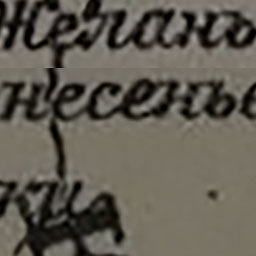 Желань
несень
ки